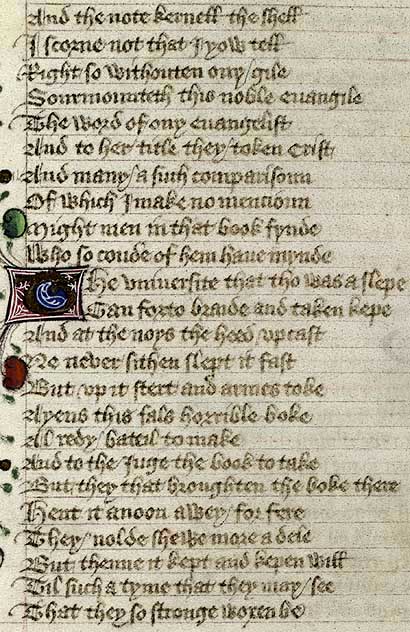 And the note kernell the shell
I scorne not that I yow tell
Right so withouten ony gile
Sourmounteth this noble euangile
The word of ony euangelist
And to her title they token Crist
And many a such comparisoun
Of which I make no mencioun
Might men in that book fynde
Who so coude of hem haue mynde
The vniuersite that tho was a slepe
Gan forto braide and taken kepe
And at the noys the heed vpcast
Ne neuer sithen slept it fast
But vp it stert and armes toke
Ayens this fals horrible boke
Al redy bateil to make
And to the Iuge the book to take
But they that broughten the boke there
Hent it anoon awey for fere
They nolde shewe more a dele
But thenne it kept and kepen will
Til such a tyme that they may see
That they so stronge woxen be